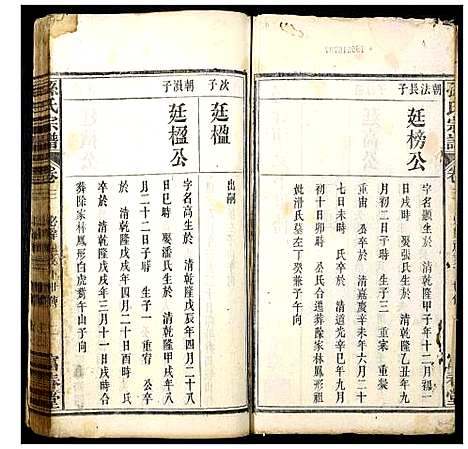 孫氏宗譜
卷三
朝法長子
廷榜公
字名顯生於 清乾隆甲子年十二月初一
日辰時 娶張氏生於 清乾隆乙丑年九
月初二日子時 生子三 重家 重
重宙 公卒於 清嘉慶辛未年六月二十
七日未時 氏卒於 清道光辛巳年九月
初十日卯時 公氏合進葬除家林鳳形祖
妣潘氏墓左丁癸兼子午向
次子
廷楹
出嗣
朝滪子
廷楹公
字名高生於 清乾隆戊辰年四月二十八
日巳時 娶潘氏生於 清乾隆甲戌年八
月二十二日子時 生子一 重宥 公卒
於 清乾隆戊戌年四月二十日戌時 氏
卒於 清乾隆戊戌年三月十一日戌時合
葬除家林鳳形白虎砦午山子向
孫氏宗譜
卷三
富春堂